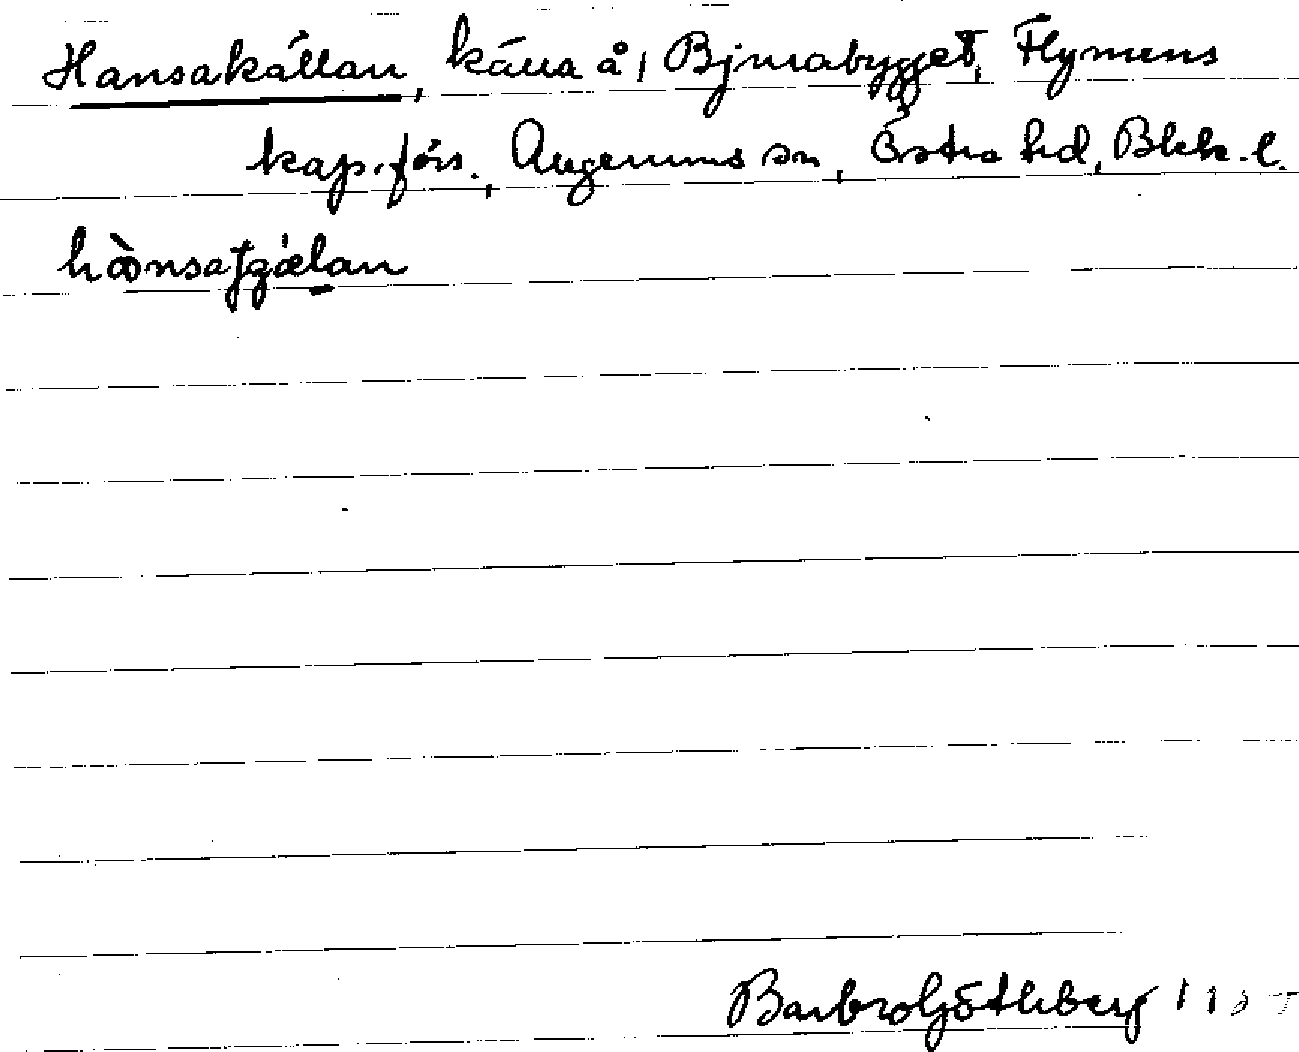 Hansakällan, källa å, Bjurabygget, Flymens
kap.förs., Augerums sn, Östra hd, Blek. l.
hànsatjälan
Barbro Göthberg